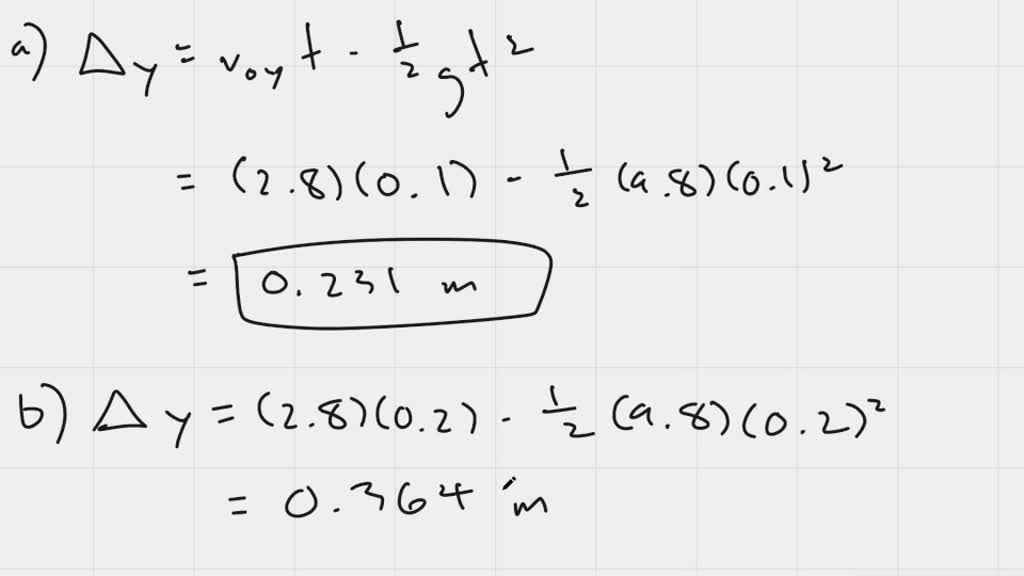 a) Δy = v₀yt - 1/2 gt²
= (2.8)(0.1) - 1/2 (9.8)(0.1)²
= 0.231 m
b) Δy = (2.8)(0.2) - 1/2 (9.8)(0.2)²
= 0.364 m